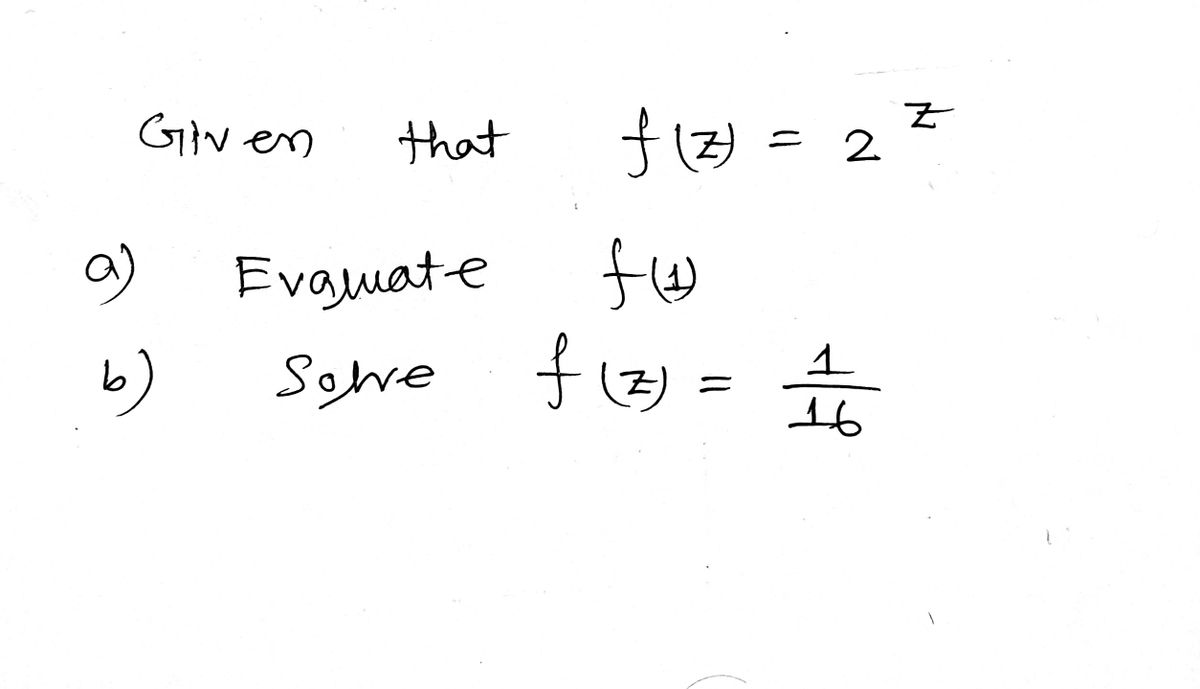 Given that f(z) = 2^z
a) Evaluate f(1)
b) Solve f(z) = 1/16